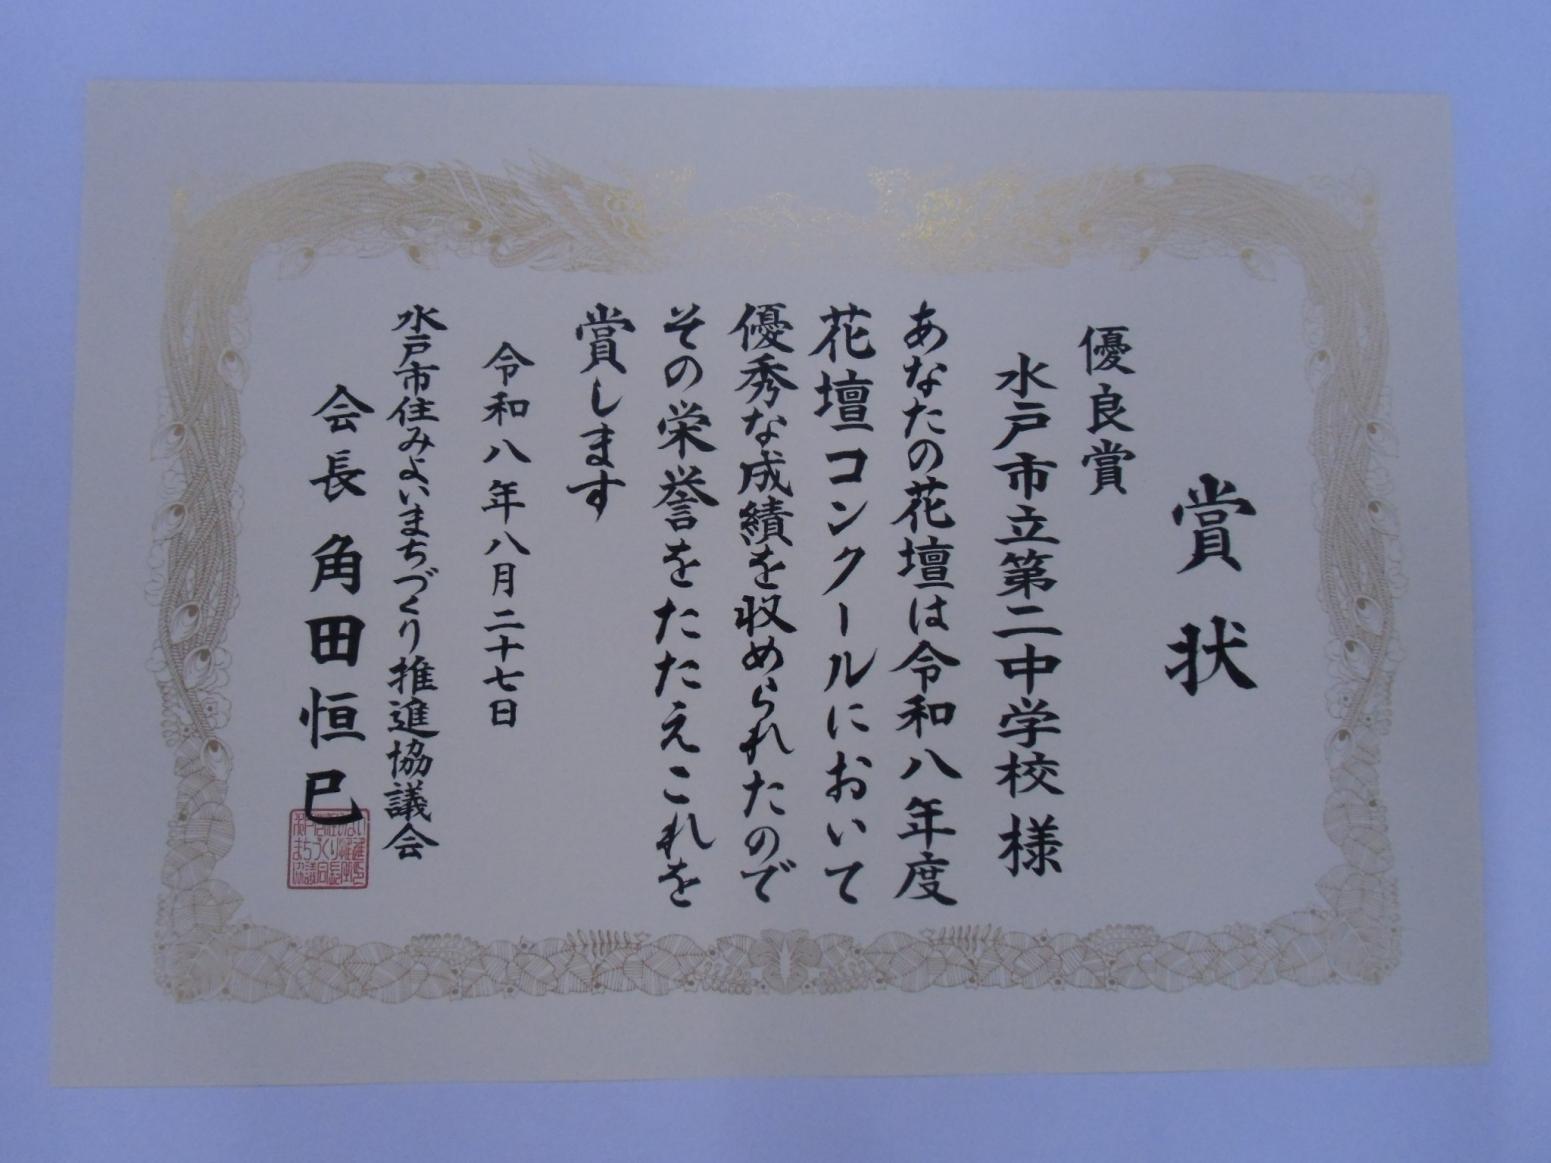 賞状
優良賞
水戸市立第二中学校様
あなたの花壇は令和八年度
花壇コンクールにおいて
優秀な成績を収められたので
その栄誉をたたえこれを
賞します
令和八年八月二十七日
水戸市住みよいまちづくり推進協議会
会長角田恒巳